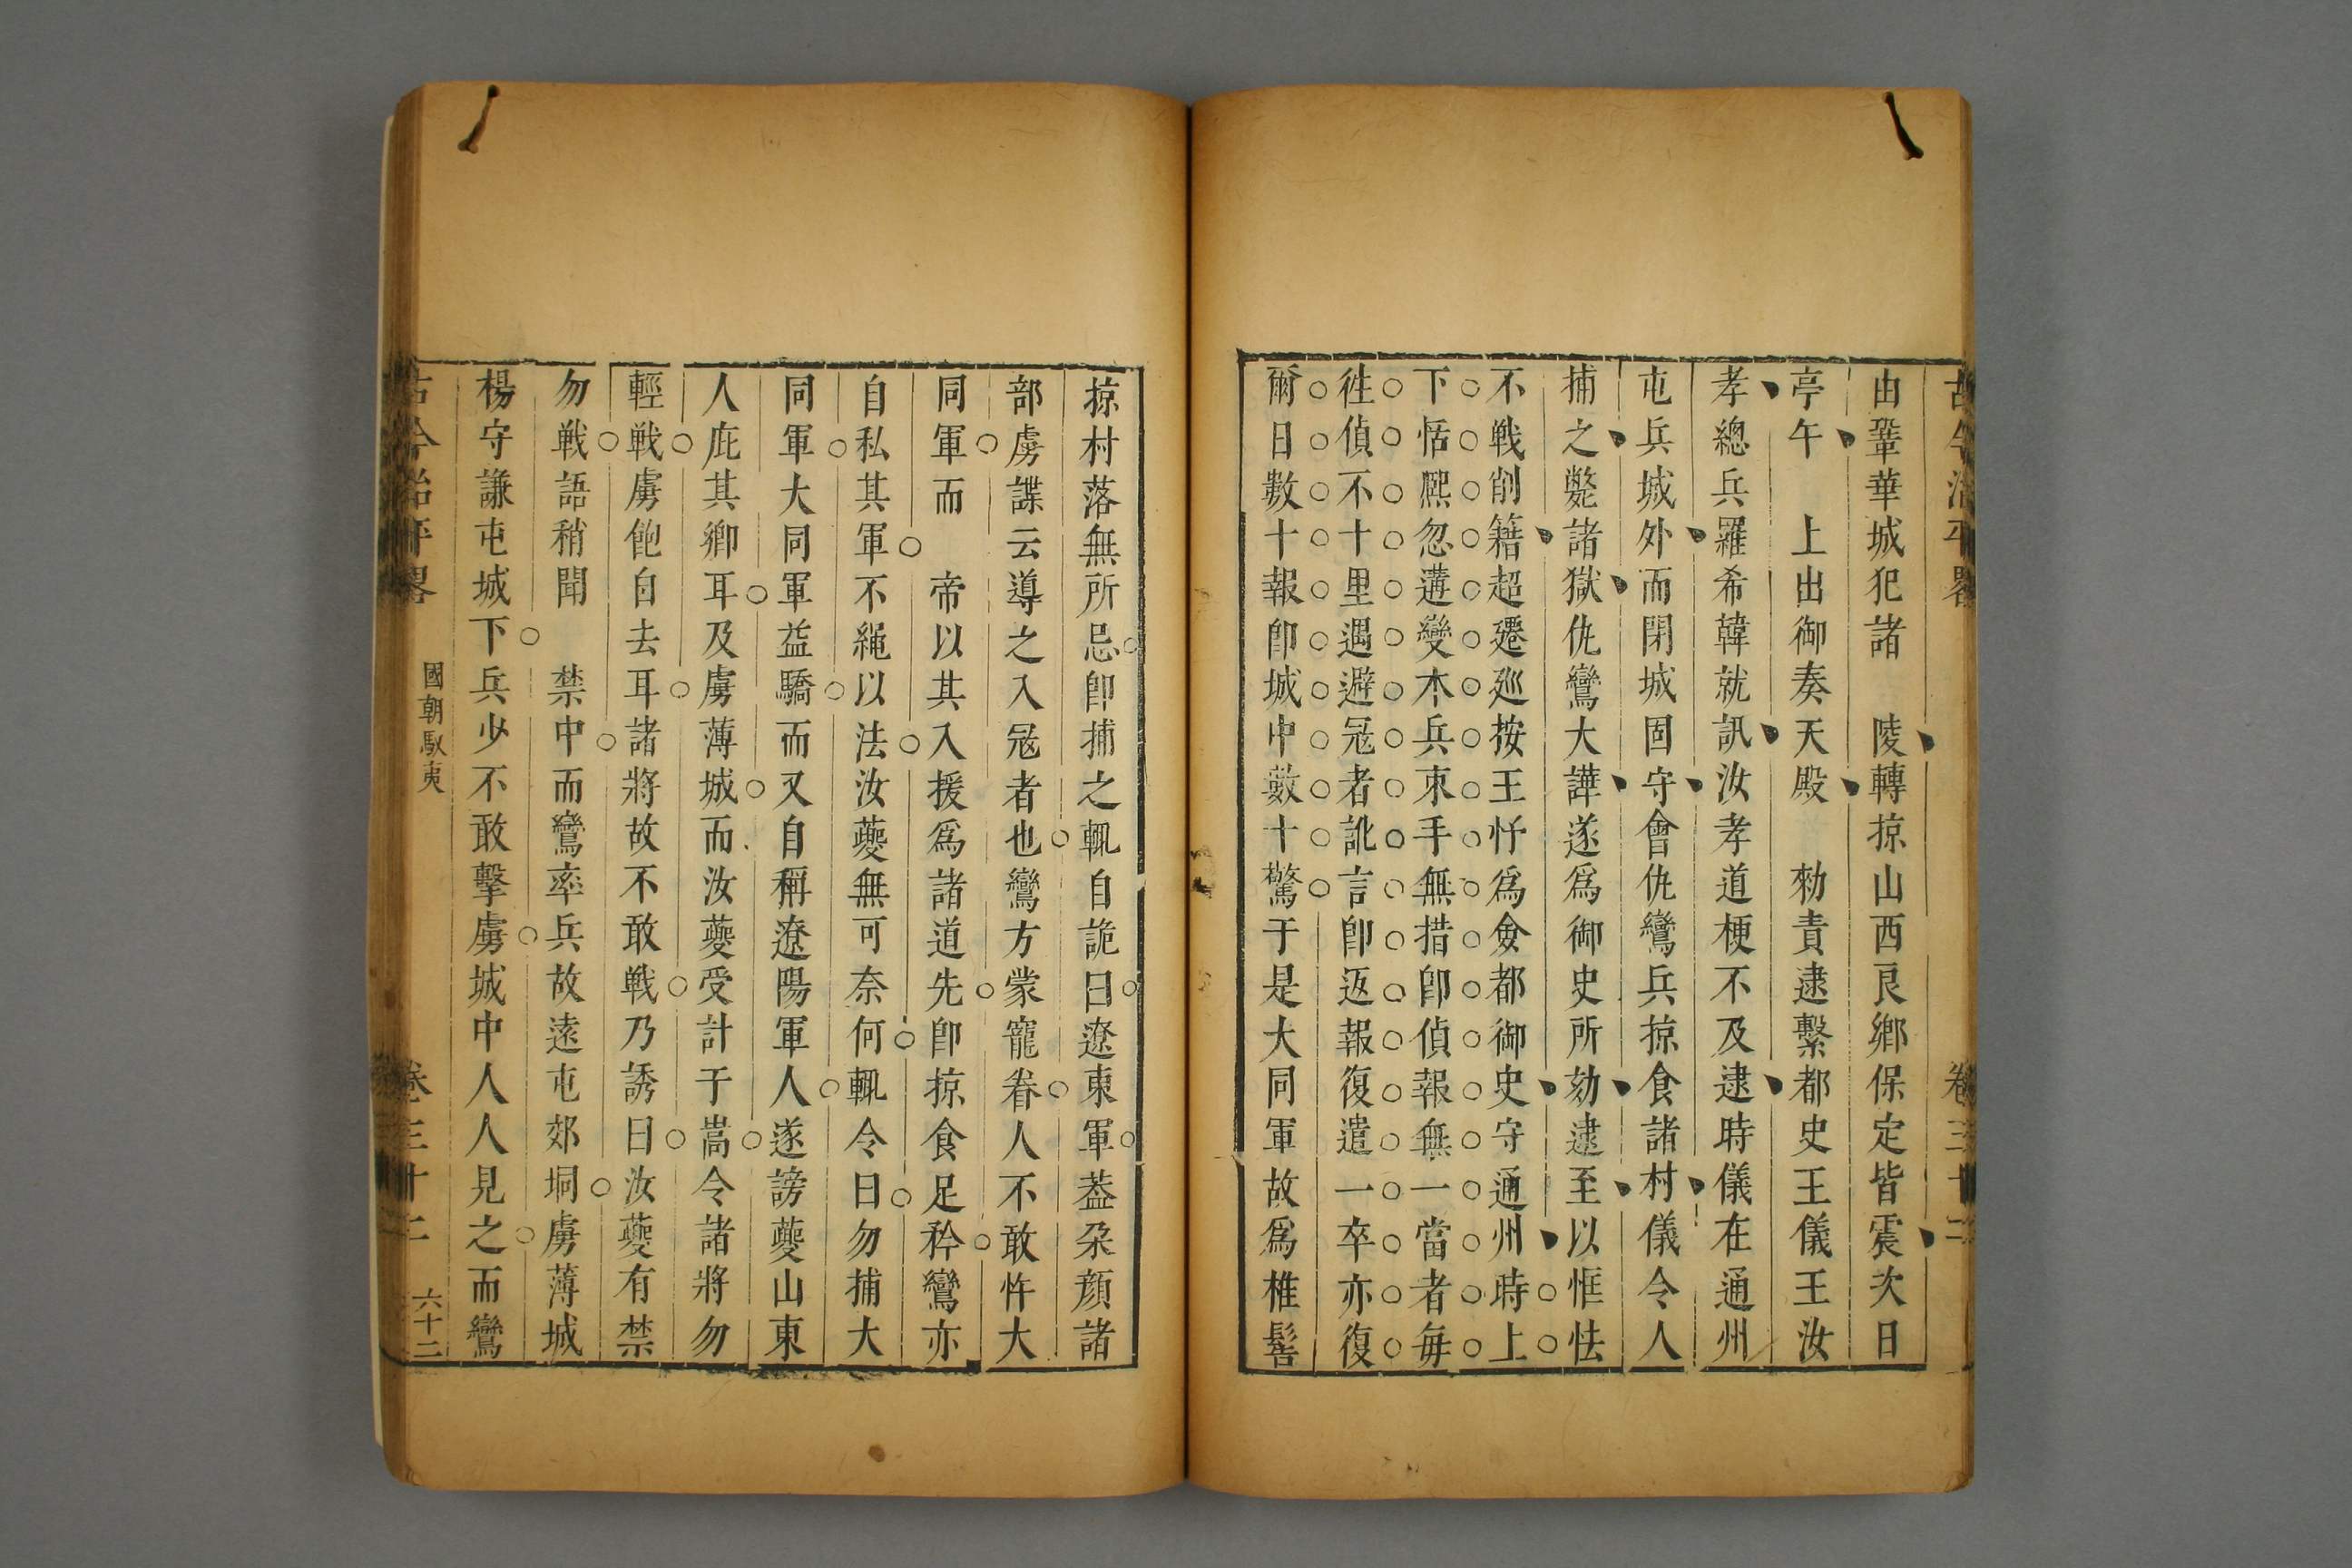 由鞏華城犯諸　陵轉掠山西良鄉保定皆震次日
亭午　上出御奏天殿　勑責逮繫都史王儀王汝
孝總兵羅希韓就訊汝孝道梗不及逮時儀在通州
屯兵城外而閉城固守會仇鸞兵掠食諸村儀令人
捕之斃諸獄仇鸞大譁遂爲御史所劾逮至以恇怯
不戰削籍超遷廵按王忬爲僉都御史守通州時上
下恬熈忽遘變木兵朿手無措卽偵報無一當者每
徃偵不十里遇避冦者訛言卽返報復遣一卒亦復
爾日數十報卽城中數十驚于是大同軍故爲椎髻
掠村落無所忌卽捕之輒自詭曰遼東軍葢朶顔諸
部虜諜云導之入冦者也鸞方蒙寵眷人不敢忤大
同軍而　帝以其入援爲諸道先卽掠食足矜鸞亦
自私其軍不繩以法汝夔無可奈何輒令日勿捕大
同軍大同軍益驕而又自稱遼陽軍人遂謗夔山東
人庇其鄉耳及虜薄城而汝夔受計于嵩令諸將勿
輕戰虜飽自去耳諸將故不敢戰乃誘曰汝夔有禁
勿戰語稍聞　禁中而鸞率兵故遠屯郊坰虜薄城
楊守謙屯城下兵少不敢擊虜城中人人見之而鸞
古今治平畧　國朝馭夷　卷三十二　六十二